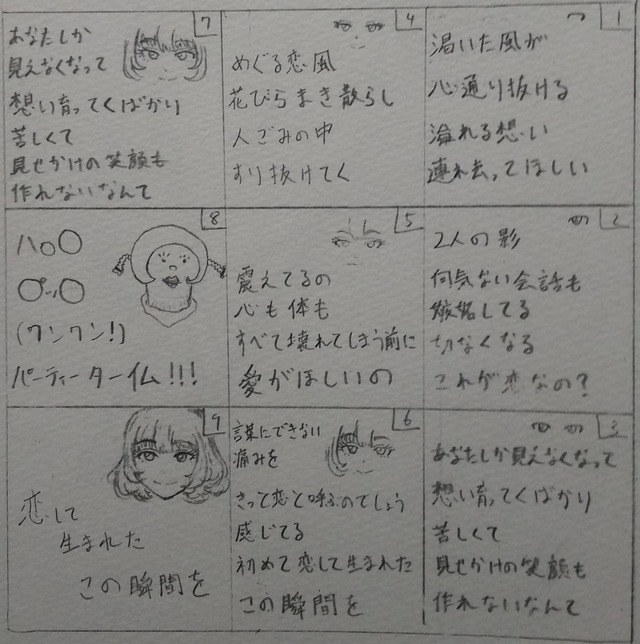 1
渇いた風が
心通り抜ける
溢れる想い
連れ去ってほしい
2
2人の影
何気ない会話も
嫉妬してる
切なくなる
これが恋なの?
3
あなたしか見えなくなって
想い育ってくばかり
苦しくて
見せかけの笑顔も
作れないなんて
4
めぐる恋風
花びらまき散らし
人ごみの中
すり抜けてく
5
震えてるの
心も体も
すべて壊れてしまう前に
愛がほしいの
6
言葉にできない
痛みを
きって恋と呼ぶのでしょう
感じてる
初めて恋して生まれた
この瞬間を
7
あなたしか
見えなくなって
想い育ってくばかり
苦しくて
見せかけの笑顔も
作れないなんて
8
ハ〇〇
〇ッ〇
(ワンワン!)
パーティーターイム!!!
9
恋して
生まれた
この瞬間を